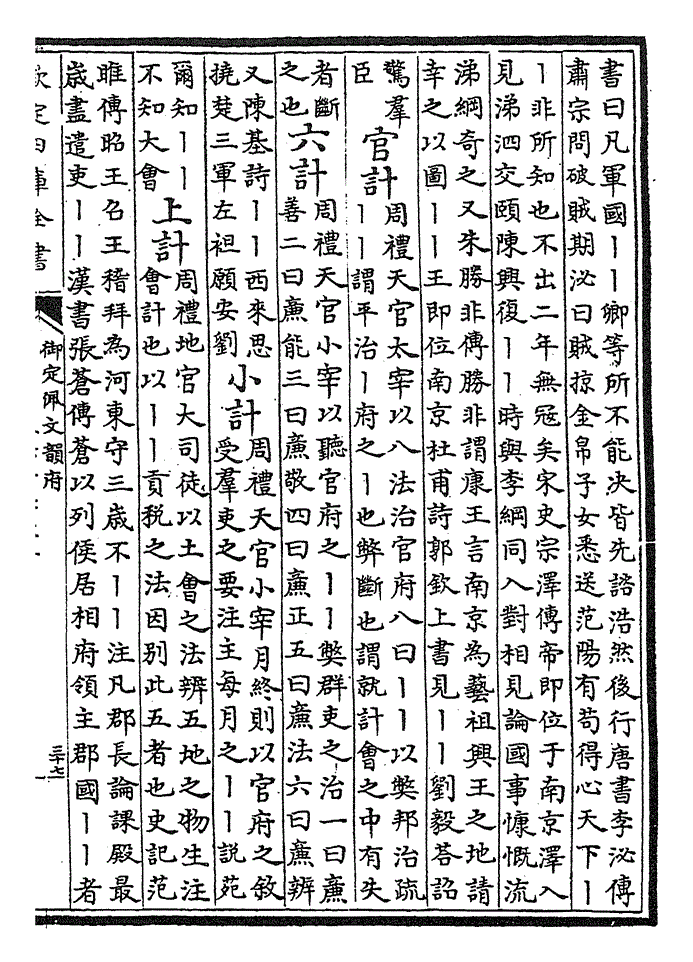 書曰凡軍國丨丨卿等所不能决皆先諮浩然後行唐書李泌傳
肅宗問破賊期泌曰賊掠金帛子女悉送范陽有苟得心天下丨
丨非所知也不出二年無冦矣宋史宗澤傳帝即位于南京澤入
見涕泗交頤陳興復丨丨時與李綱同入對相見論國事慷慨流
涕綱奇之又朱勝非傳勝非謂康王言南京為藝祖興王之地請
幸之以圖丨丨王即位南京杜甫詩郭欽上書見丨丨劉毅荅詔
驚羣
臣
官計
周禮天官太宰以八法治官府八曰丨丨以獘邦治疏
丨丨謂平治丨府之丨也弊斷也謂就計會之中有失
者斷
之也
六計
周禮天官小宰以聽官府之丨丨獘群吏之治一曰㢘
善二曰㢘能三曰㢘敬四曰㢘正五曰㢘法六曰㢘辨
又陳基詩丨丨西來思
撓楚三軍左袒願安劉
小計
周禮天官小宰月終則以官府之敘
受羣吏之要注主每月之丨丨說苑
爾知丨丨
不知大會
上計
周禮地官大司徒以土會之法辨五地之物生注
會計也以丨丨貢税之法因别此五者也史記范
雎傳昭王召王稽拜為河東守三歲不丨丨注凡郡長論課殿最
歲盡遣吏丨丨漢書張蒼傳蒼以列侯居相府領主郡國丨丨者
欽定四庫全書
御定佩文韻府
三十七